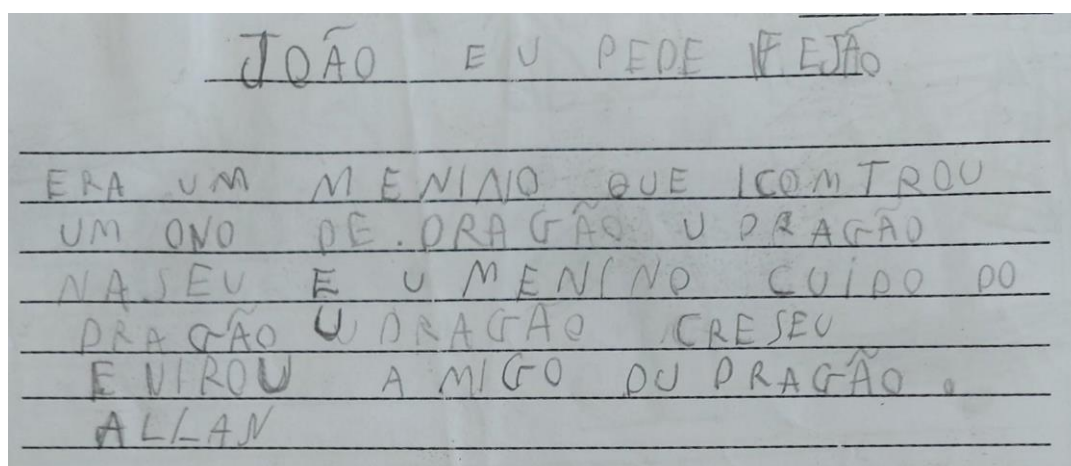 JOÃO E U PEDE FEJÃO
ERA UM MENINO QUE ICOMTROU
UM ONO DE. DRAGÃO U DRAGÃO
NASEU E U MENINO CUIDO DO
DRAGÃO U DRAGÃO CRESEU
E VIROU AMIGO DU DRAGÃO.
ALLAN